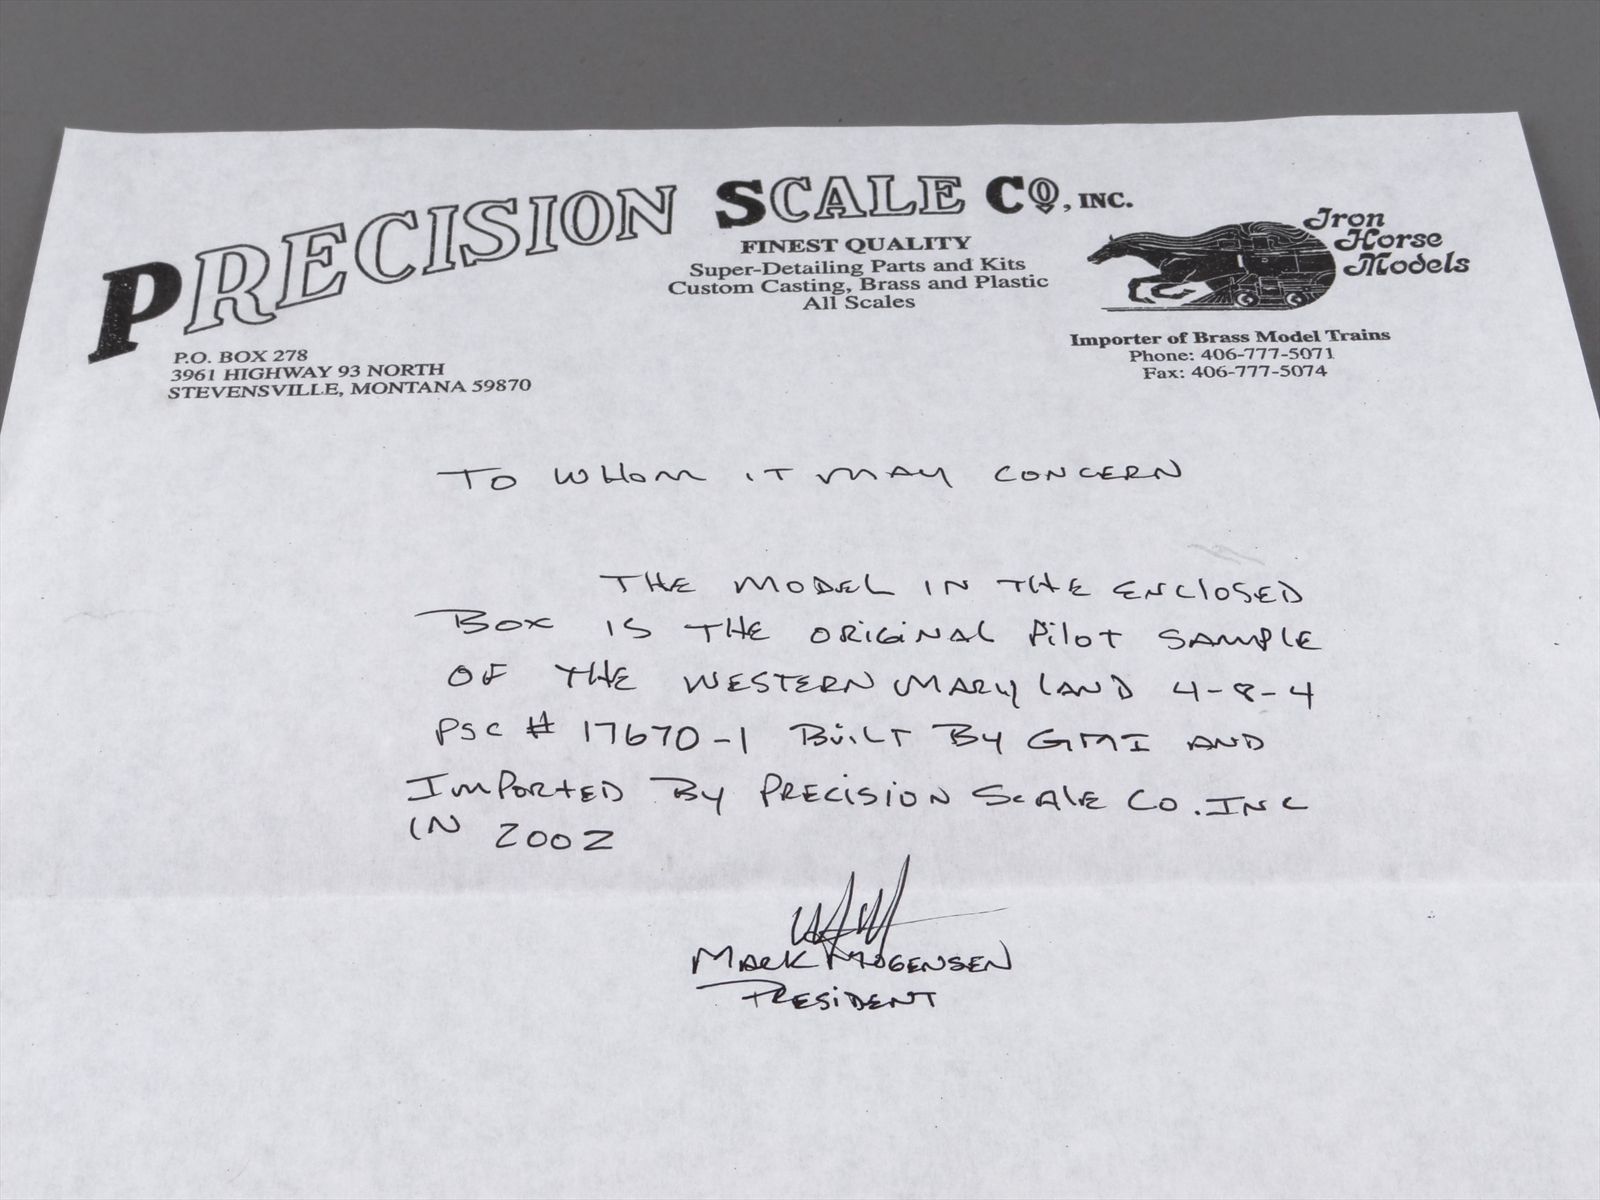 PRECISION SCALE CO, INC.
FINEST QUALITY
Super-Detailing Parts and Kits
Custom Casting, Brass and Plastic
All Scales
Iron
Horse
Models
Importer of Brass Model Trains
Phone: 406-777-5071
Fax: 406-777-5074
P.O. BOX 278
3961 HIGHWAY 93 NORTH
STEVENSVILLE, MONTANA 59870
TO WHOM IT MAY CONCERN
THE MODEL IN THE ENCLOSED
BOX IS THE ORIGINAL PILOT SAMPLE
OF THE WESTERN MARYLAND 4-8-4
PSC # 17670-1 BUILT BY GMI AND
IMPORTED BY PRECISION SCALE CO. INC
IN 2002
MARK MOGENSEN
PRESIDENT